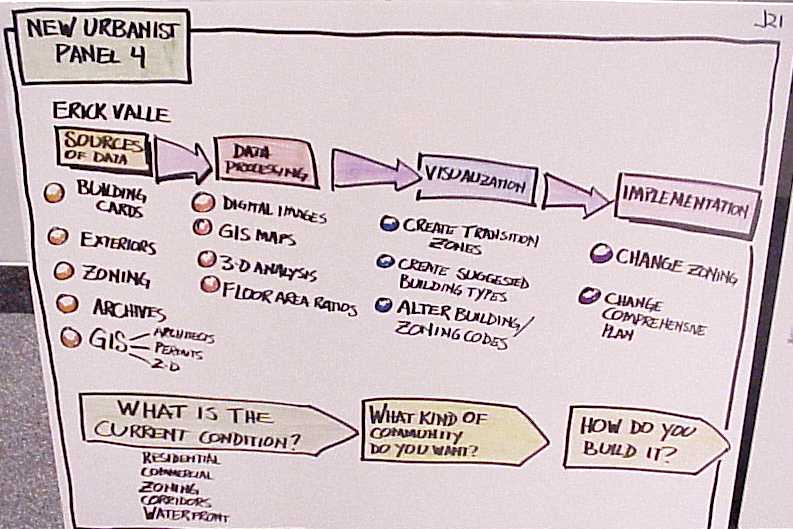 J21
NEW URBANIST
PANEL 4
ERICK VALLE
SOURCES
OF DATA
BUILDING
CARDS
EXTERIORS
ZONING
ARCHIVES
GIS
ARCHITECTS
PERMITS
2-D
DATA
PROCESSING
DIGITAL IMAGES
GIS MAPS
3-D ANALYSIS
FLOOR AREA RATIOS
VISUALIZATION
CREATE TRANSITION
ZONES
CREATE SUGGESTED
BUILDING TYPES
ALTER BUILDING/
ZONING CODES
IMPLEMENTATION
CHANGE ZONING
CHANGE
COMPREHENSIVE
PLAN
WHAT IS THE
CURRENT CONDITION?
RESIDENTIAL
COMMERCIAL
ZONING
CORRIDORS
WATERFRONT
WHAT KIND OF
COMMUNITY
DO YOU WANT?
HOW DO YOU
BUILD IT?